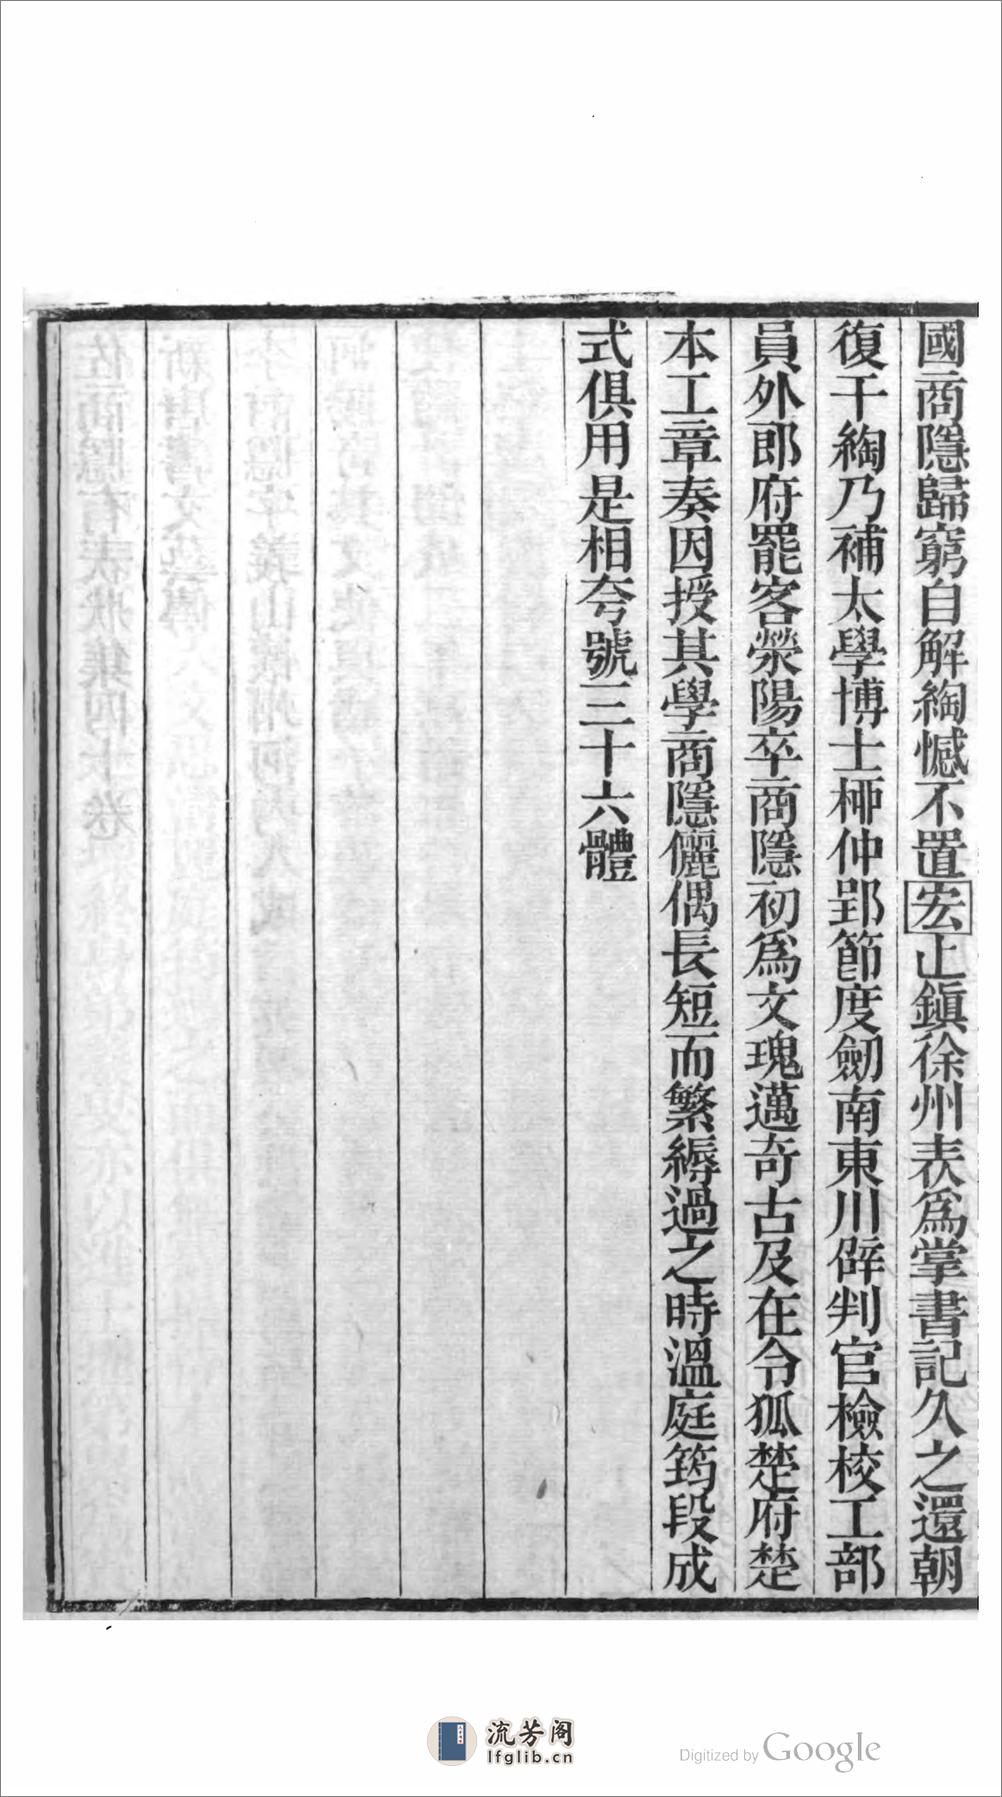 國商隱歸窮自解綯憾不置宏止鎮徐州表爲掌書記久之還朝
復干綯乃補太學博士桺仲郢節度劒南東川辟判官檢校工部
員外郎府罷客滎陽卒商隱初爲文瑰邁奇古及在令狐楚府楚
本工章奏因授其學商隱儷偶長短而繁縟過之時溫庭筠段成
式俱用是相夸號三十六體
流芳阁
lfglib.cn
Digitized by Google